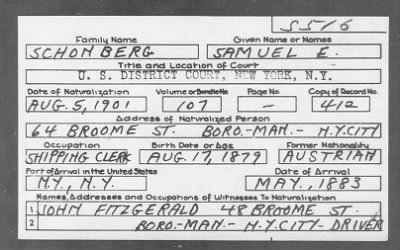 S516
Family Name Given Name or Names
SCHONBERG SAMUEL E.
Title and Location of Court
U. S. DISTRICT COURT, NEW YORK, N.Y.
Date of Naturalization Volume or Bundle No. Page No. Copy of Record No.
AUG. 5, 1901 107 — 412
Address of Naturalized Person
64 BROOME ST. BORO.-MAN.- N.Y.CITY
Occupation Birth Date or Age Former Nationality
SHIPPING CLERK AUG. 17, 1879 AUSTRIAN
Port of Arrival in the United States Date of Arrival
N.Y., N.Y. MAY., 1883
Names, Addresses and Occupations of Witnesses To Naturalization
1 JOHN FITZGERALD 48 BROOME ST.
2 BORO.-MAN-- N.Y.CITY- DRIVER